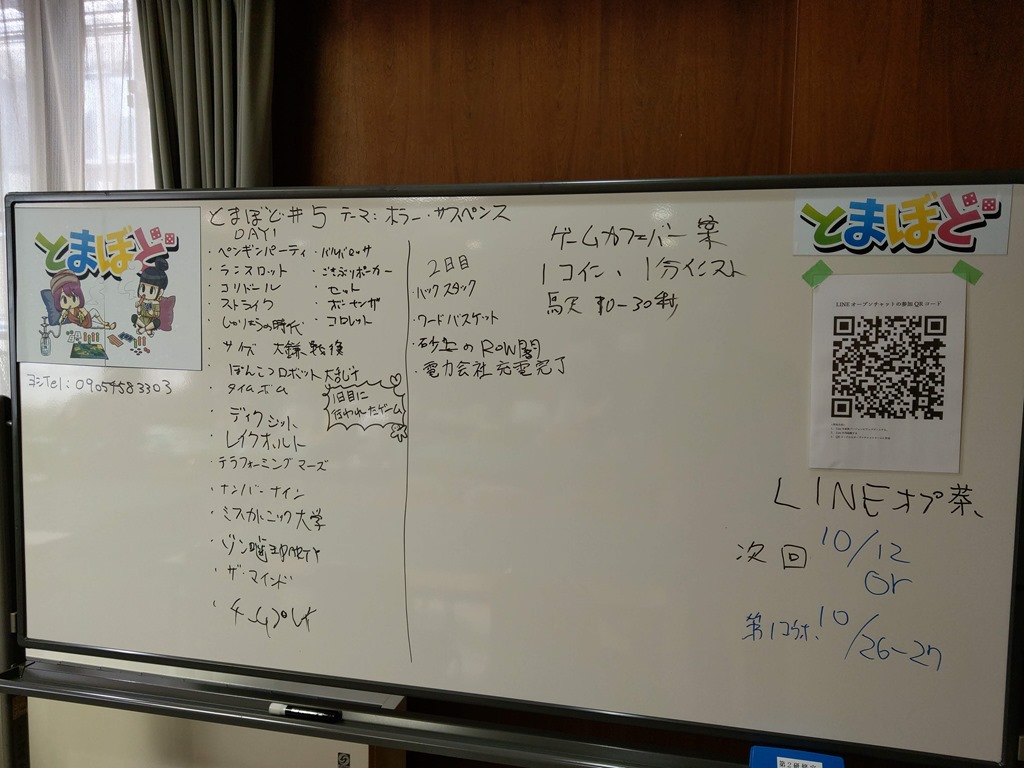 とまぼど
とまぼど#5 テーマ:ホラー・サスペンス
DAY1
・ペンギンパーティ ・バルバロッサ
・ランスロット ・ごきぶりポーカー
・コリドール ・セット
・ストライク ・ボーナンザ
の時代 ・コロレット
・サイズ 大鎌戦役
・ぽんこつロボット大乱斗
・タイムボム
1日目に
行われたゲーム
・ディクシット
・レイクホルト
・テラフォーミングマーズ
・ナンバーナイン
・ミスカトニック大学
・ゾン噛ま
・ザ・マインド
・チームプレイ
ヨシTel:09054583303
2日目
・バックスタック
・ワードバスケット
・砂上のROW閣
・電力会社充電完了
ゲームカフェバー案
1コイン、1分インスト
10-30秒
とまぼど
LINE オープンチャットの参加QRコード
LINEオプ茶
次回 10/12
or
10/26-27